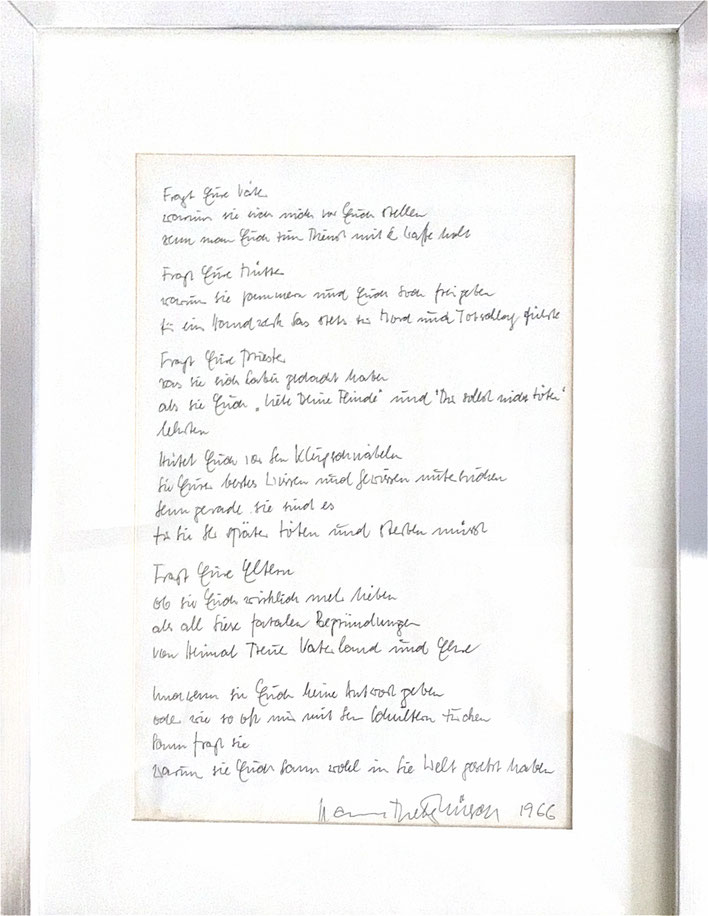 Fragt Eure Väter
warum sie sich nicht vor Euch stellen
wenn man Euch zum Dienst mit d. Waffe holt
Fragt Eure Mütter
warum sie jammern und Euch doch freigeben
für ein Handwerk das stets zu Mord und Totschlag führte
Fragt Eure Priester
was sie sich dabei gedacht haben
als sie Euch „liebe Deine Feinde" und "Du sollst nicht töten"
lehrten
Hütet Euch vor den Klugschnäbeln
die Euer bestes Wissen und Gewissen untersuchen
denn gerade sie sind es
für die Ihr später töten und sterben müsst
Fragt Eure Eltern
ob sie Euch wirklich mehr lieben
als all diese fatalen Begründungen
von Heimat Treue Vaterland und Ehre
Und wenn sie Euch keine Antwort geben
oder wie so oft nur mit den Schultern zucken
Dann fragt sie
warum sie Euch dann wohl in die Welt gesetzt haben
1966